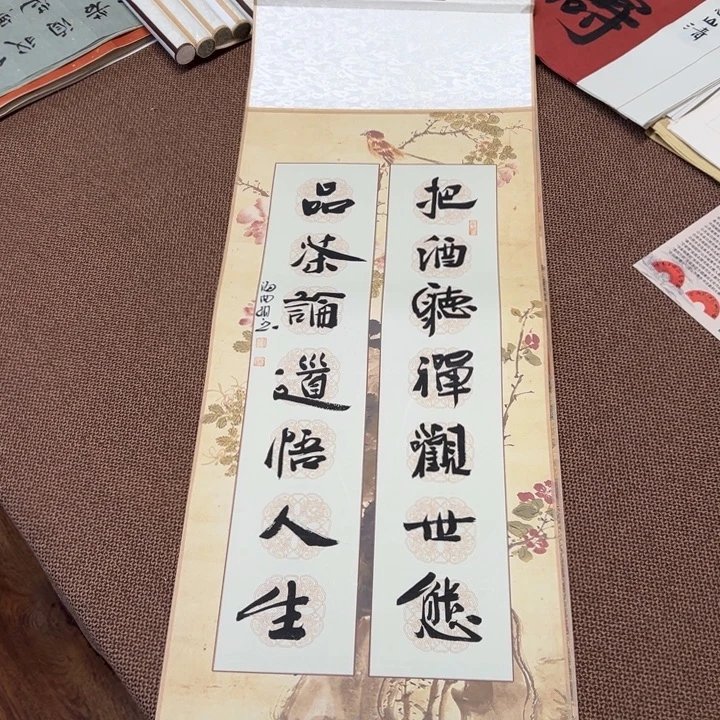 把酒聽禪觀世態
品茶論道悟人生